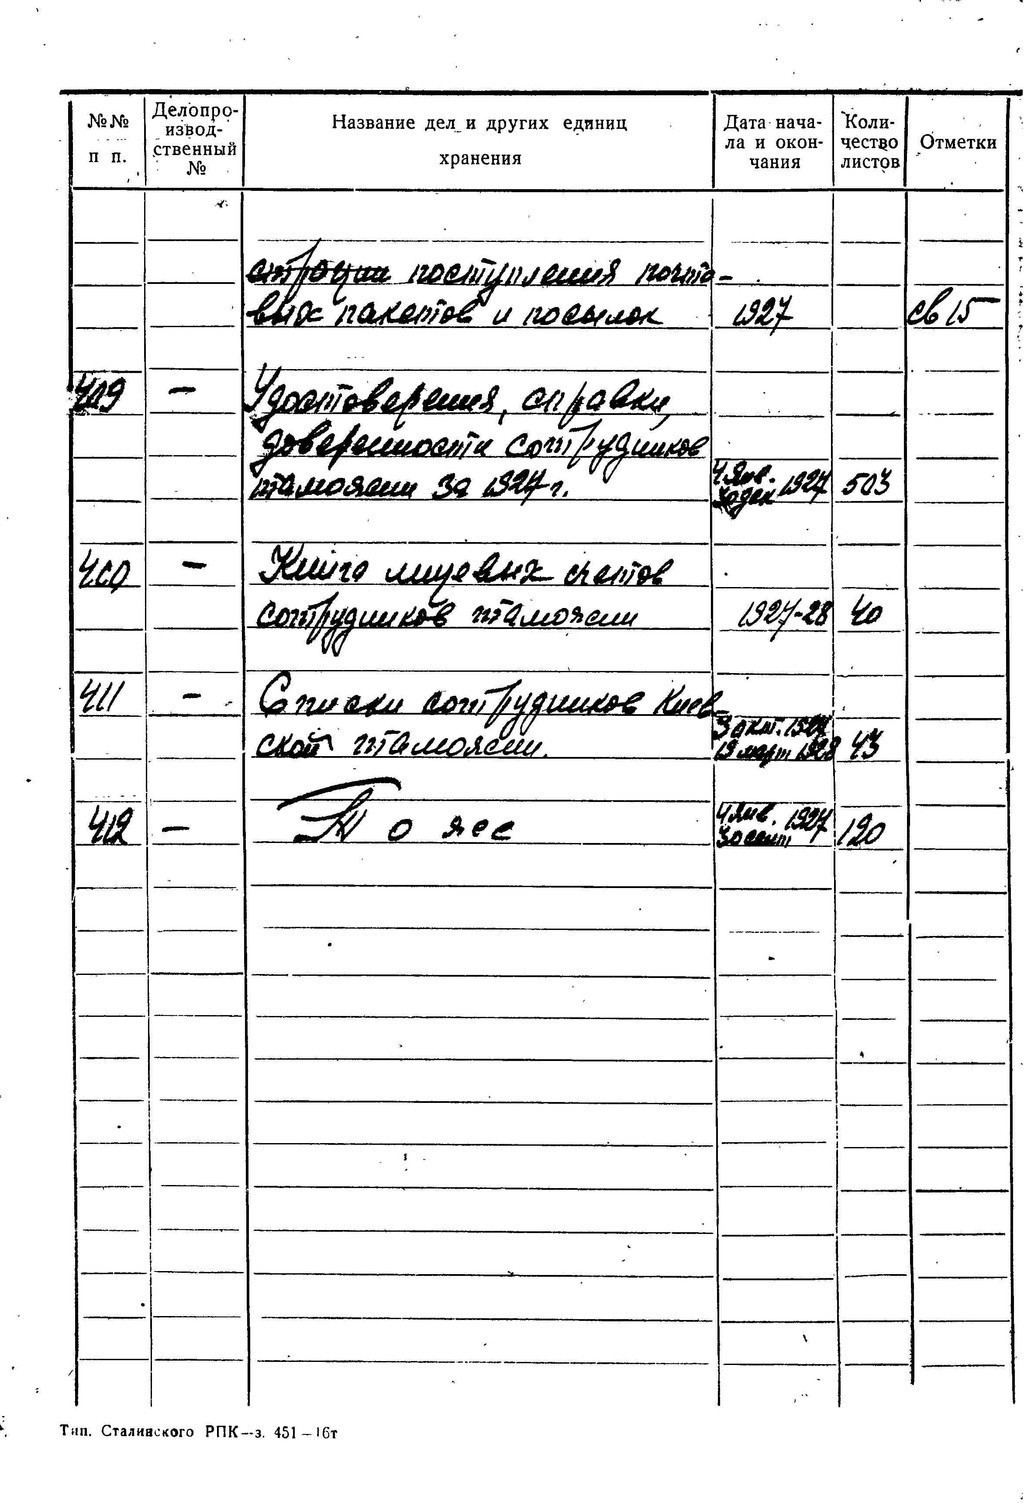 №№ п п.
Делопроизводственный №
Название дел и других единиц хранения
Дата начала и окончания
Количество листов
Отметки
страции поступления почто-
вых пакетов и посылок 1927 св 15
409 — Удостоверения, справки,
доверенности сотрудников
таможни за 1927 г. 4 Янв. 30 дек 1927 503
410 — Книга лицевых счетов
сотрудников таможни 1927-28 40
411 — Списки сотрудников Киев-
ской таможни. 3 окт. 1927 19 март 1928 43
412 — То же 4 Янв. 30 сент 1927 120
Тип. Сталинского РПК—з. 451—16т